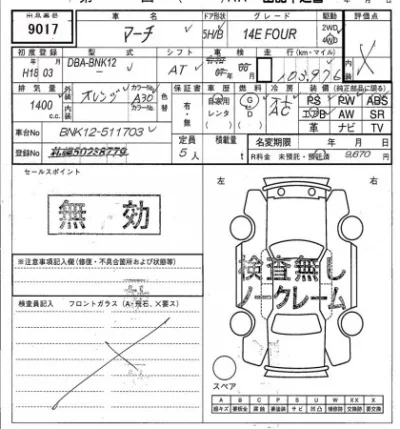 9017
車名
マーチ
ドア形状
5H/B
グレード
14E FOUR
駆動
2WD
4WD
評価点
X
初度登録
年 月
H18 03
型式
DBA-BNK12
シフト
AT
車検
走行(km・マイル)
103,976
内装
排気量
1400
c.c.
外装
オレンジ
カラーNo.
A30
内装
カラーNo.
色替
保証書
有・無
車歴
自家用
レンタ
燃料
G
D
冷房
AC
装備(純正部品に限る)
PS PW ABS
エアB AW SR
革 ナビ TV
車台No
BNK12-511703
定員
5人
積載量
t
名変期限 年 月 日
登録No
R料金 未預託・預託済 9,670円
セールスポイント
無効
左 右
検査無し
ノークレーム
※注意事項記入欄(修復・不具合箇所および状態等)
検査員記入 フロントガラス(A・飛石、X要ス)
スペア
A B C P S U W X XX